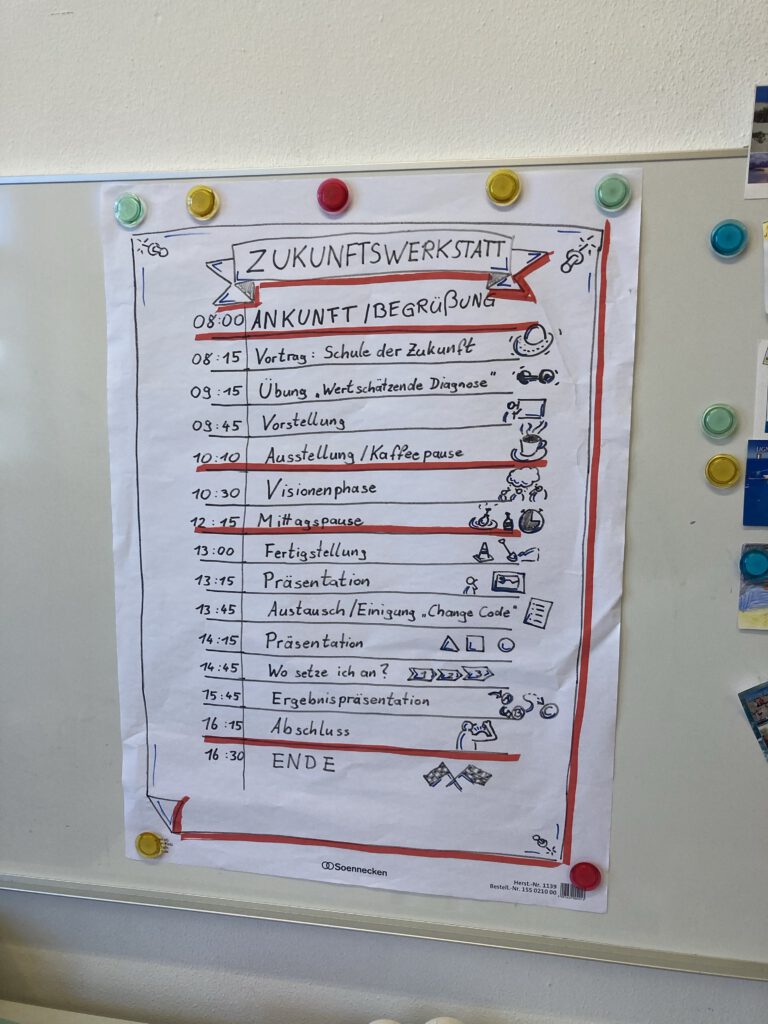 ZUKUNFTSWERKSTATT
08:00 ANKUNFT/BEGRÜßUNG
08:15 Vortrag: Schule der Zukunft
09:15 Übung „Wertschätzende Diagnose"
09:45 Vorstellung
10:10 Ausstellung/Kaffeepause
10:30 Visionenphase
12:15 Mittagspause
13:00 Fertigstellung
13:15 Präsentation
13:45 Austausch/Einigung „Change Code"
14:15 Präsentation
14:45 Wo setze ich an? 1 2 3
15:45 Ergebnispräsentation
16:15 Abschluss
16:30 ENDE
Soennecken
Herst.-Nr. 1139
Bestell.-Nr. 155 0210 00